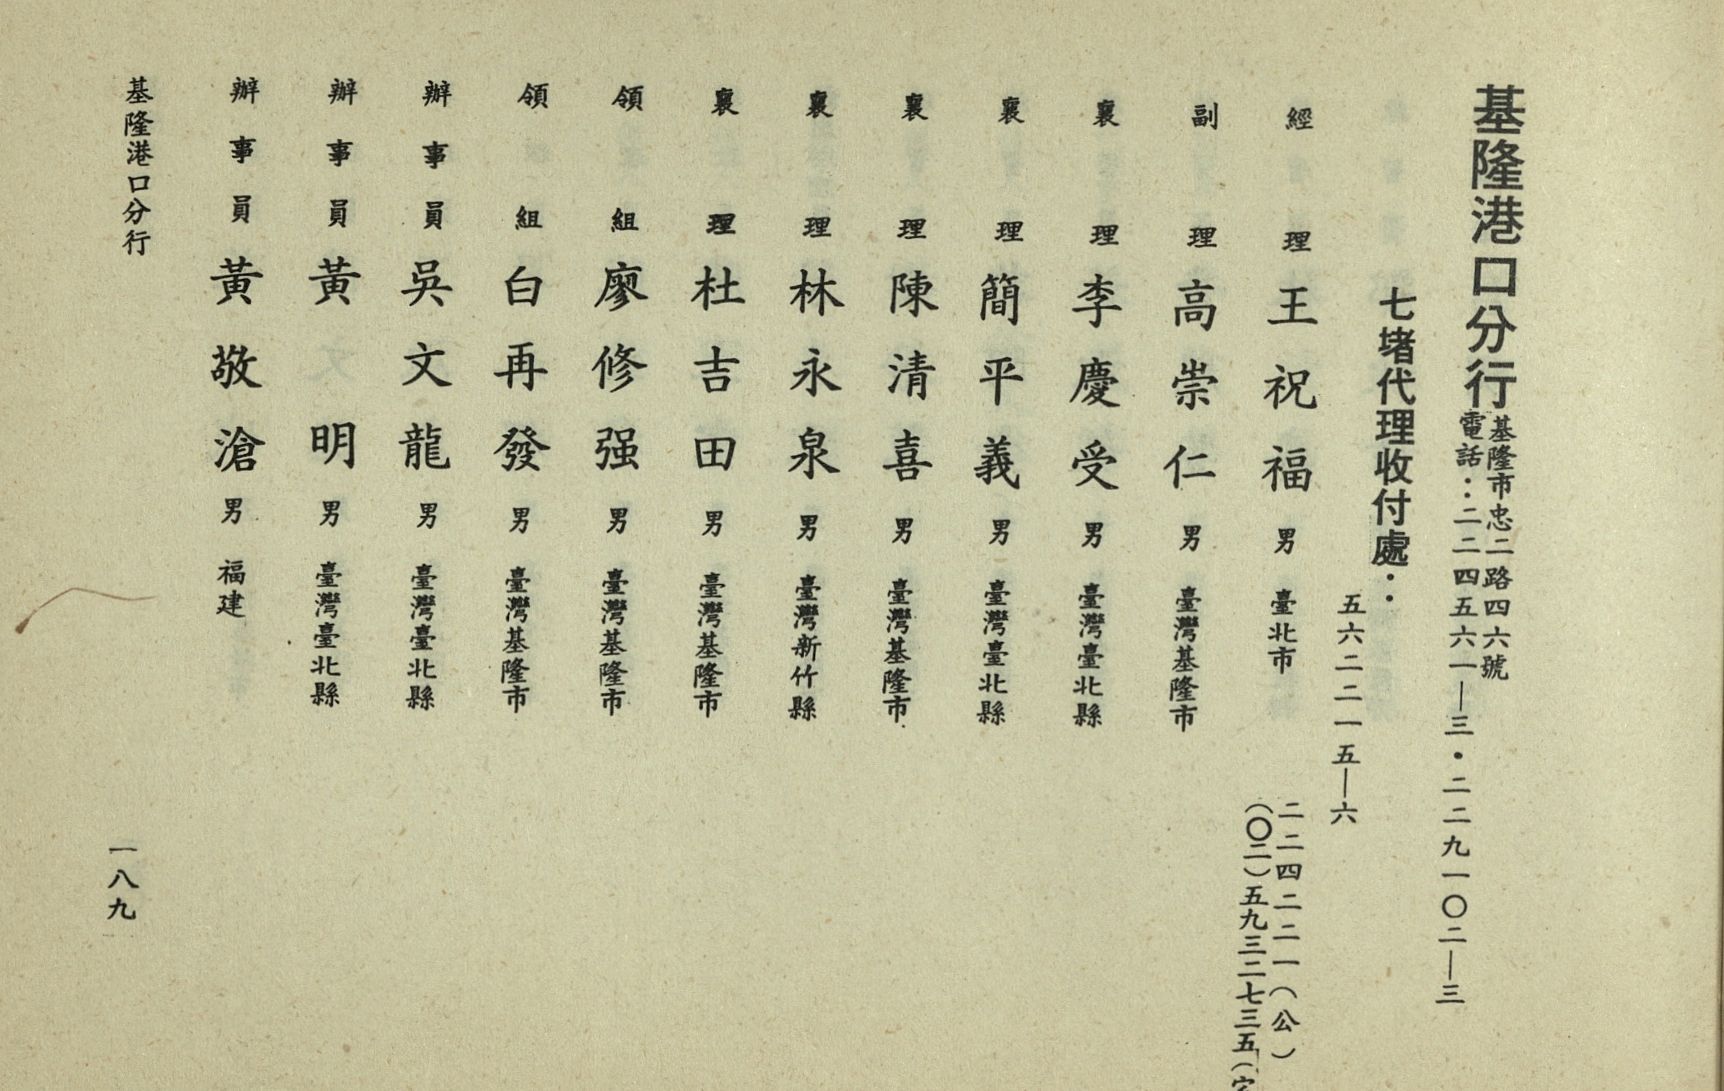 基隆港口分行
基隆市忠二路四六號
電話：二二四五六一—三・二二九一〇二—三
七堵代理收付處：
五六二二一五—六
經理 王祝福 男 臺北市
二二四二二一（公）
（〇二）五九三二七三五（
副理 高崇仁 男 臺灣基隆市
襄理 李慶受 男 臺灣臺北縣
襄理 簡平義 男 臺灣臺北縣
襄理 陳清喜 男 臺灣基隆市
襄理 林永泉 男 臺灣新竹縣
襄理 杜吉田 男 臺灣基隆市
領組 廖修强 男 臺灣基隆市
領組 白再發 男 臺灣基隆市
辦事員 吳文龍 男 臺灣臺北縣
辦事員 黃明 男 臺灣臺北縣
辦事員 黃敬滄 男 福建
基隆港口分行
一八九